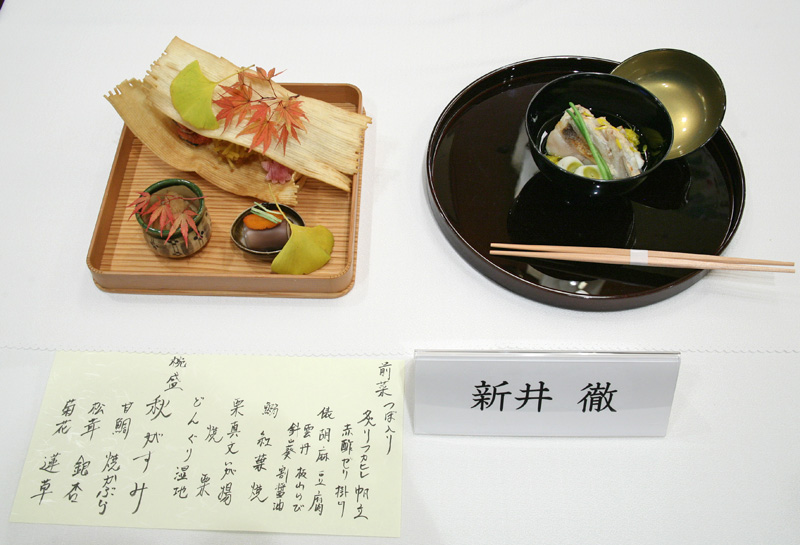 前菜 つぼ入り
炙りフカヒレ 帆立
赤酢ゼリ掛り
俵胡麻豆腐
雲丹 板山わび
針葵 割醤油
鰯 紅葉焼
栗真丈いが揚
焼 栗
どんぐり湿地
焼盛 秋がすみ
甘鯛 焼かぶら
松茸 銀杏
菊花 蓮草
新井 徹